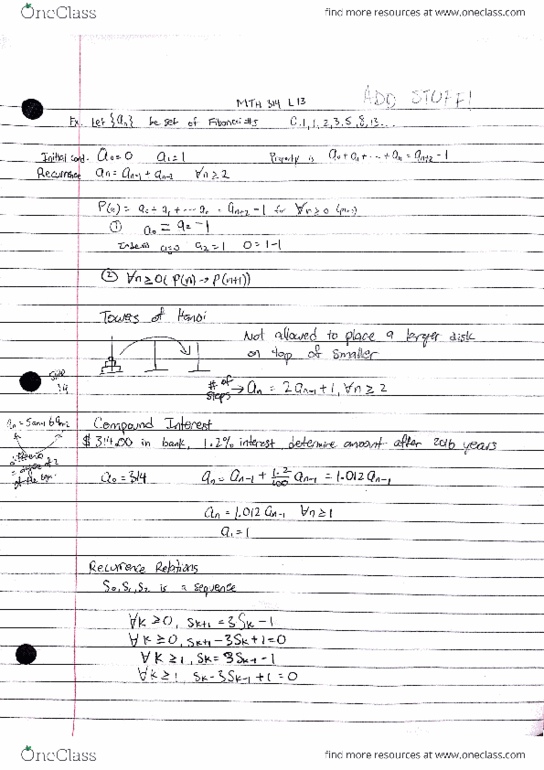 OneClass find more resources at www.oneclass.com
MTH 314 L13 ADD STUFF!
Ex. Let {an} be set of Fibonacci #s 0,1,1,2,3,5,8,13...
Initial cond. a0=0 a1=1 Property is a0+a1+...+an=an+2-1
Recurrence an=an-1+an-2 ∀n≥2
P(n)= a0+a1+...an=an+2-1 for ∀n≥0
① a0=a2-1
Indeed a0=0 a2=1 0=1-1
② ∀n≥0(P(n)→P(n+1))
Towers of Hanoi
Not allowed to place a larger disk
on top of smaller
# of steps → an = 2an-1+1, ∀n≥2
Compound Interest
$314.00 in bank, 1.2% interest determine amount after 2016 years
a0=314 an=an-1+1.2/100 an-1=1.012an-1
an=1.012an-1 ∀n≥1
a1=1
Recurrence Relations
S0,S1,S2 is a sequence
∀k≥0, Sk+1=3Sk-1
∀k≥0, Sk+1-3Sk+1=0
∀k≥1, Sk=3Sk-1-1
∀k≥1, Sk-3Sk-1+1=0
OneClass find more resources at www.oneclass.com